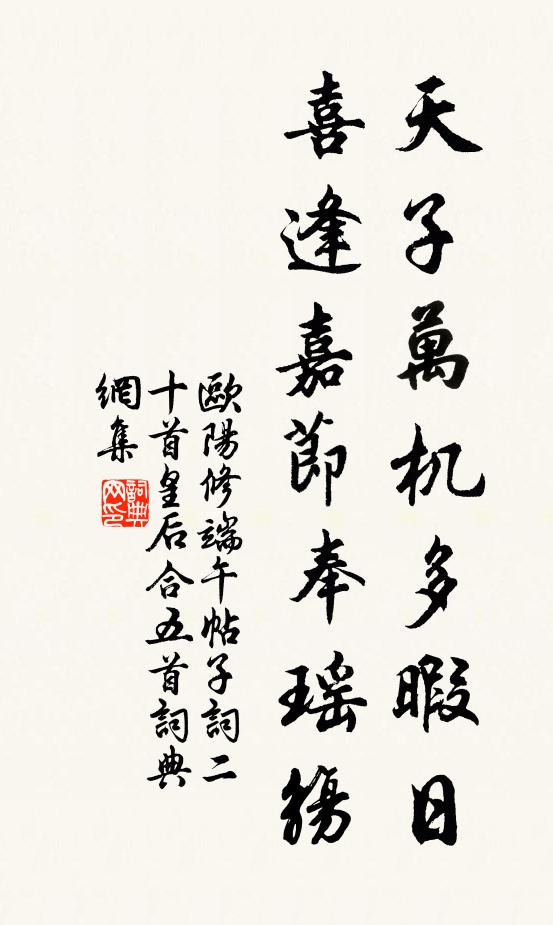 天子萬机多暇日
喜逢嘉節奉瑶觴
歐陽修端午帖子詞二
十首皇后合五首詞典
網集
詞典
网印